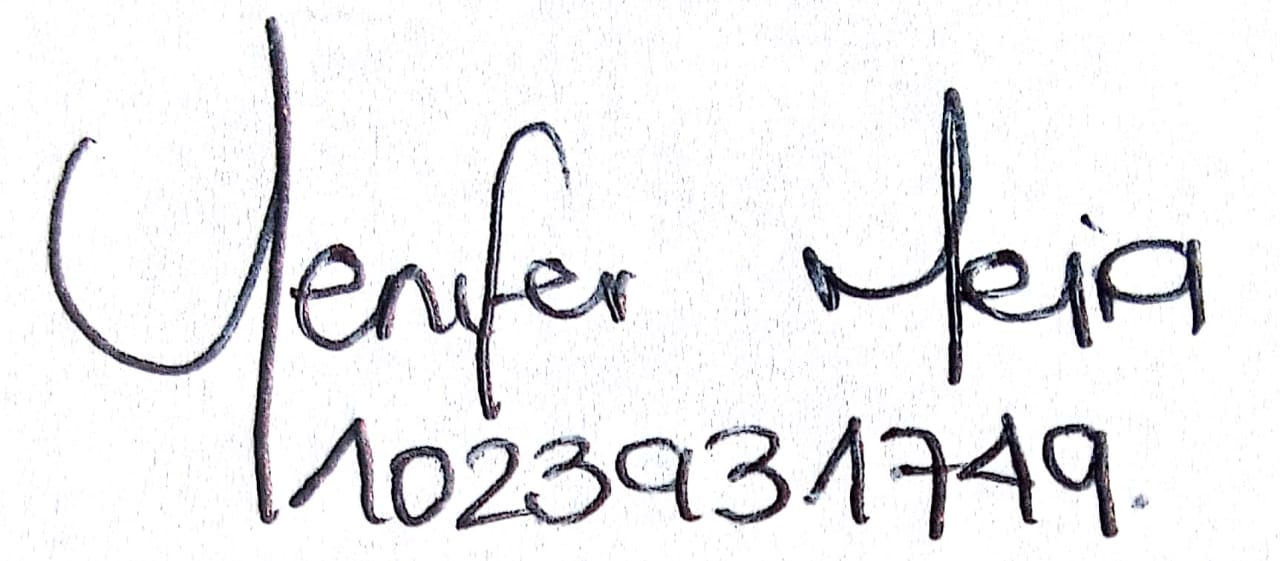 Yenifer Mejia
1023931749.